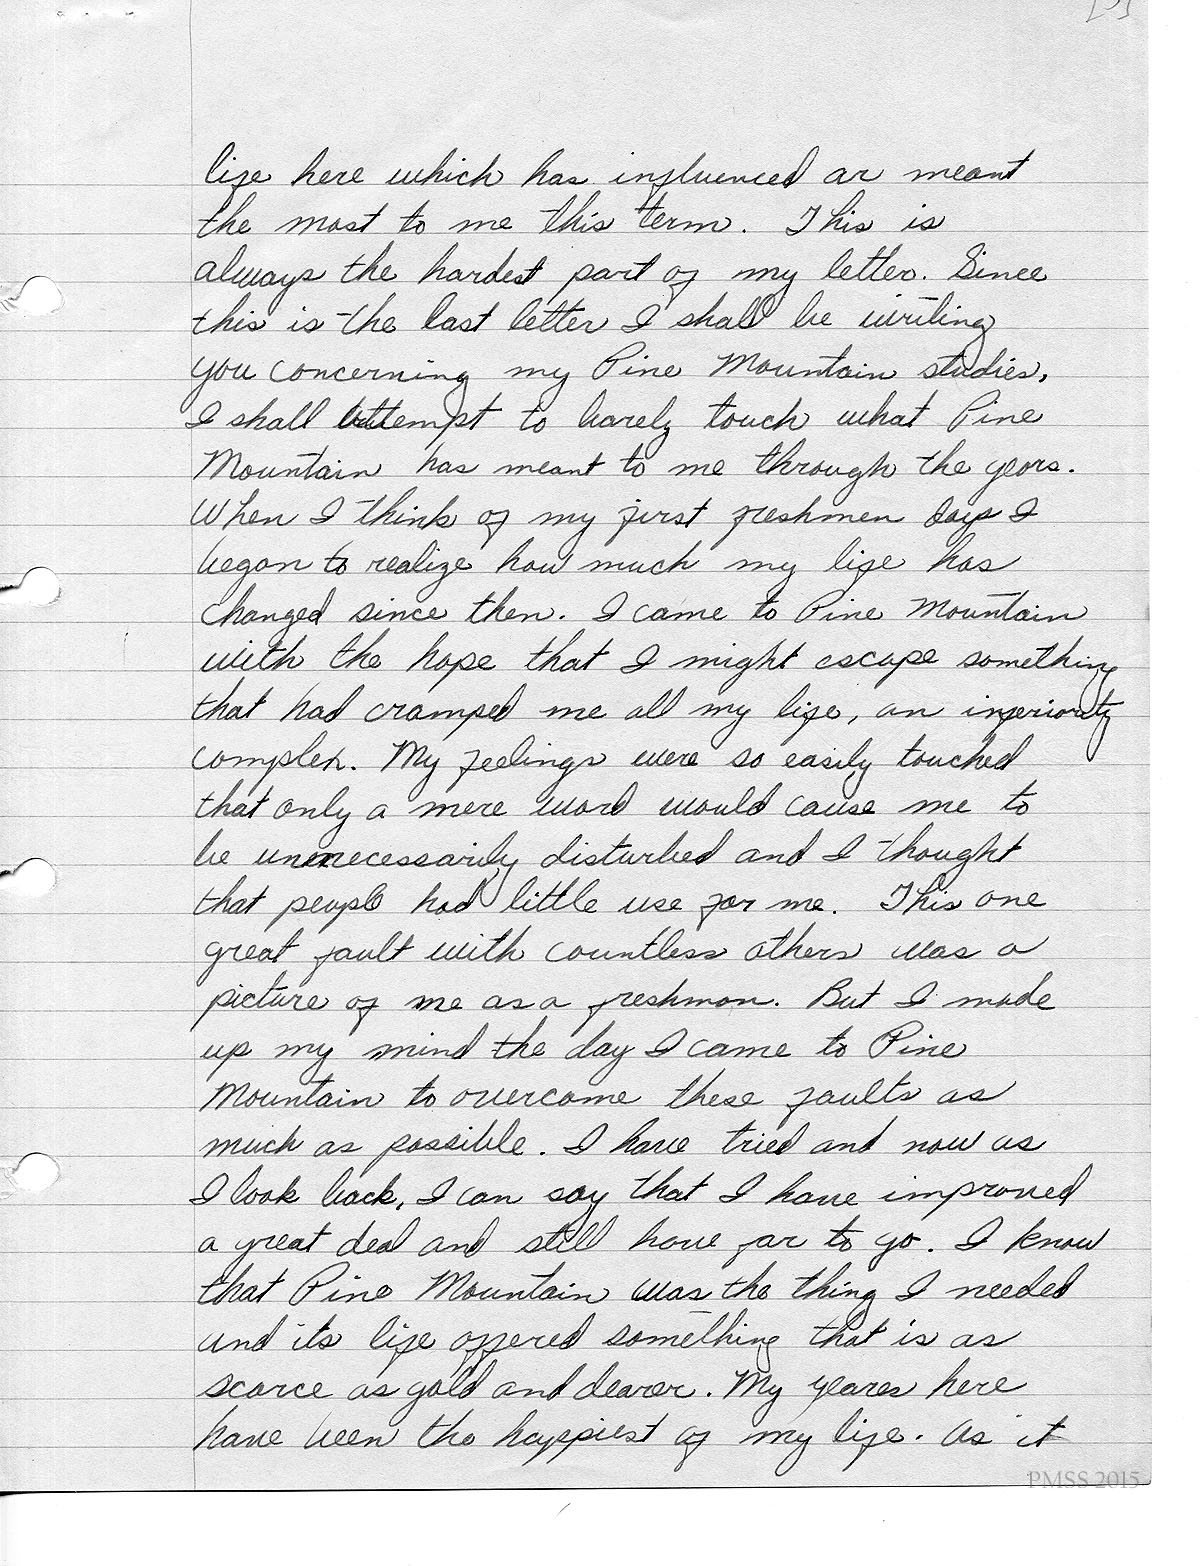 life here which has influenced or meant
the most to me this term. This is
always the hardest part of my letter. Since
this is the last letter I shall be writing
you concerning my Pine Mountain studies,
I shall attempt to barely touch what Pine
Mountain has meant to me through the years.
When I think of my first freshmen days I
began to realize how much my life has
changed since then. I came to Pine Mountain
with the hope that I might escape something
that had cramped me all my life, an inferiority
complex. My feelings were so easily touched
that only a mere word would cause me to
be unnecessarily disturbed and I thought
that people had little use for me. This one
great fault with countless others was a
picture of me as a freshman. But I made
up my mind the day I came to Pine
Mountain to overcome these faults as
much as possible. I have tried and now as
I look back, I can say that I have improved
a great deal and still have far to go. I know
that Pine Mountain was the thing I needed
and its life offered something that is as
scarce as gold and dearer. My years here
have been the happiest of my life. As it
PMSS 2015